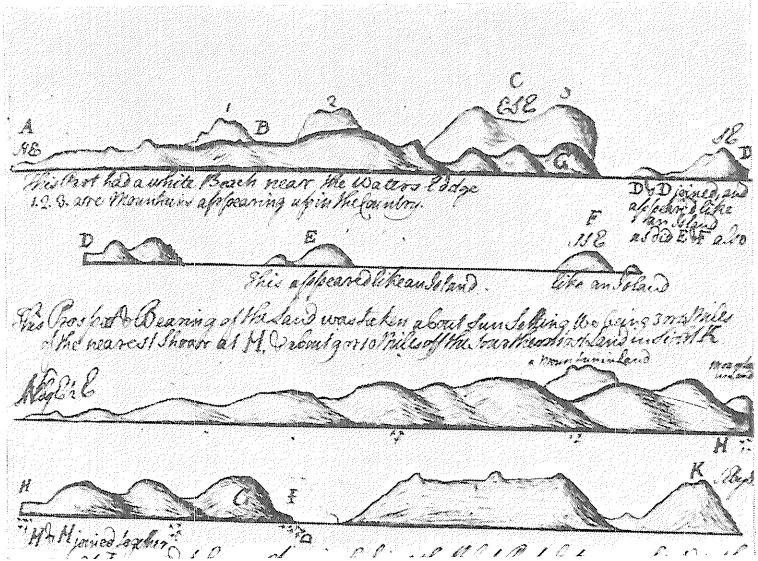 C
1 2 ESE 3
A B SE
NE G D
This Part had a white Beach near the Waters Edge
1. 2. 3. are Mountains appearing up in the Country.
D & D joined, and
appeared like
an Island
as did E & F also
D E F
SSE
This appeared like an Island. like an Island
This Prospect & Bearing of the Land was taken about Sun Setting, We being 3 Miles
of the nearest Shoar at H, & about 9 or 10 Miles off the Southermost Land in Sight K
a Mountain in Land
E
H
H G I K
H & H joined together